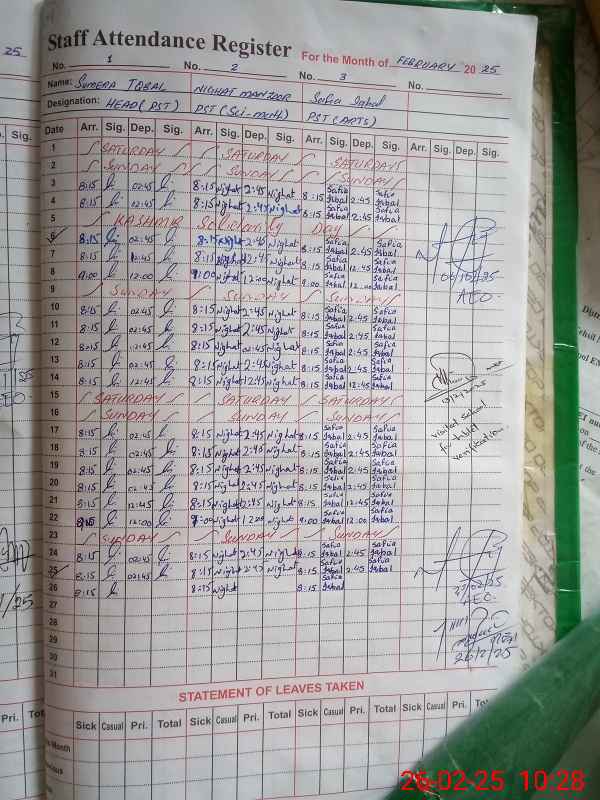 25
Sig.
Pri. Tot
Staff Attendance Register For the Month of FEBRUARY 20 25
No. 1 No. 2 No. 3 No.
Name: SUMERA IQBAL NIGHAT MANZOOR Safia Iqbal
Designation: HEAD (PST) PST (Sci-math) PST (ARTS)
Date Arr. Sig. Dep. Sig. Arr. Sig. Dep. Sig. Arr. Sig. Dep. Sig. Arr. Sig. Dep. Sig.
1 SATURDAY SATURDAY SATURDAYS
2 SUNDAY SUNDAY SUNDAY
3 8:15 02:45 8:15 Nighat 2:45 Nighat 8:15 Safia Iqbal 2:45 Safia Iqbal
4 8:15 02:45 8:15 Nighat 2:45 Nighat 8:15 Safia Iqbal 2:45 Safia Iqbal
5 KASHMIR Solidarity Day
6 8:15 02:45 8:15 Nighat 2:45 Nighat 8:15 Safia Iqbal 2:45 Safia Iqbal
7 8:15 12:45 8:15 Nighat 12:45 Nighat 8:15 Safia Iqbal 12:45 Safia Iqbal
8 9:00 12:00 9:00 Nighat 12:00 Nighat 9:00 Safia Iqbal 12:00 Safia Iqbal
AEO
9 SUNDAY SUNDAY SUNDAY
10 8:15 02:45 8:15 Nighat 2:45 Nighat 8:15 Safia Iqbal 2:45 Safia Iqbal
11 8:15 02:45 8:15 Nighat 2:45 Nighat 8:15 Safia Iqbal 2:45 Safia Iqbal
12 8:15 2:45 8:15 Nighat 2:45 Nighat 8:15 Safia Iqbal 2:45 Safia Iqbal
13 8:15 02:45 8:15 Nighat 2:45 Nighat 8:15 Safia Iqbal 2:45 Safia Iqbal
14 8:15 12:45 8:15 Nighat 12:45 Nighat 8:15 Safia Iqbal 12:45 Safia Iqbal
15 SATURDAY SATURDAY SATURDAYS
16 SUNDAY SUNDAY SUNDAY
visited school
for
verification.
17 8:15 02:45 8:15 Nighat 2:45 Nighat 8:15 Safia Iqbal 2:45 Safia Iqbal
18 8:15 02:45 8:15 Nighat 2:45 Nighat 8:15 Safia Iqbal 2:45 Safia Iqbal
19 8:15 02:45 8:15 Nighat 2:45 Nighat 8:15 Safia Iqbal 2:45 Safia Iqbal
20 8:15 02:45 8:15 Nighat 2:45 Nighat 8:15 Safia Iqbal 2:45 Safia Iqbal
21 8:15 12:45 8:15 Nighat 12:45 Nighat 8:15 Safia Iqbal 12:45 Safia Iqbal
22 12:00 9:00 Nighat 1200 Nighat 9:00 Safia Iqbal 12:00 Safia Iqbal
23 SUNDAY SUNDAY SUNDAY
24 8:15 02:45 8:15 Nighat 2:45 Nighat 8:15 Safia Iqbal 2:45 Safia Iqbal
25 8:15 02:45 8:15 Nighat 2:45 Nighat 8:15 Safia Iqbal 2:45 Safia Iqbal
26 8:15 8:15 Nighat 8:15 Safia Iqbal
AEO
27
28
29
30
31
26/2/25
STATEMENT OF LEAVES TAKEN
Sick Casual Pri. Total Sick Casual Pri. Total Sick Casual Pri. Total Sick Casual Pri. Total
Month
26-02-25 10:28